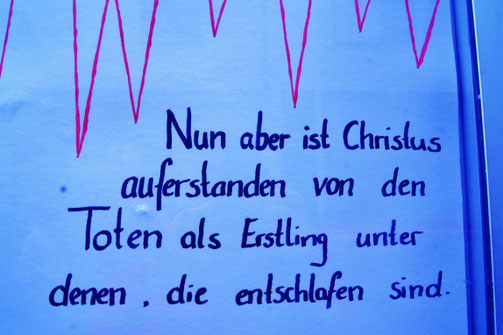 Nun aber ist Christus
auferstanden von den
Toten als Erstling unter
denen, die entschlafen sind.